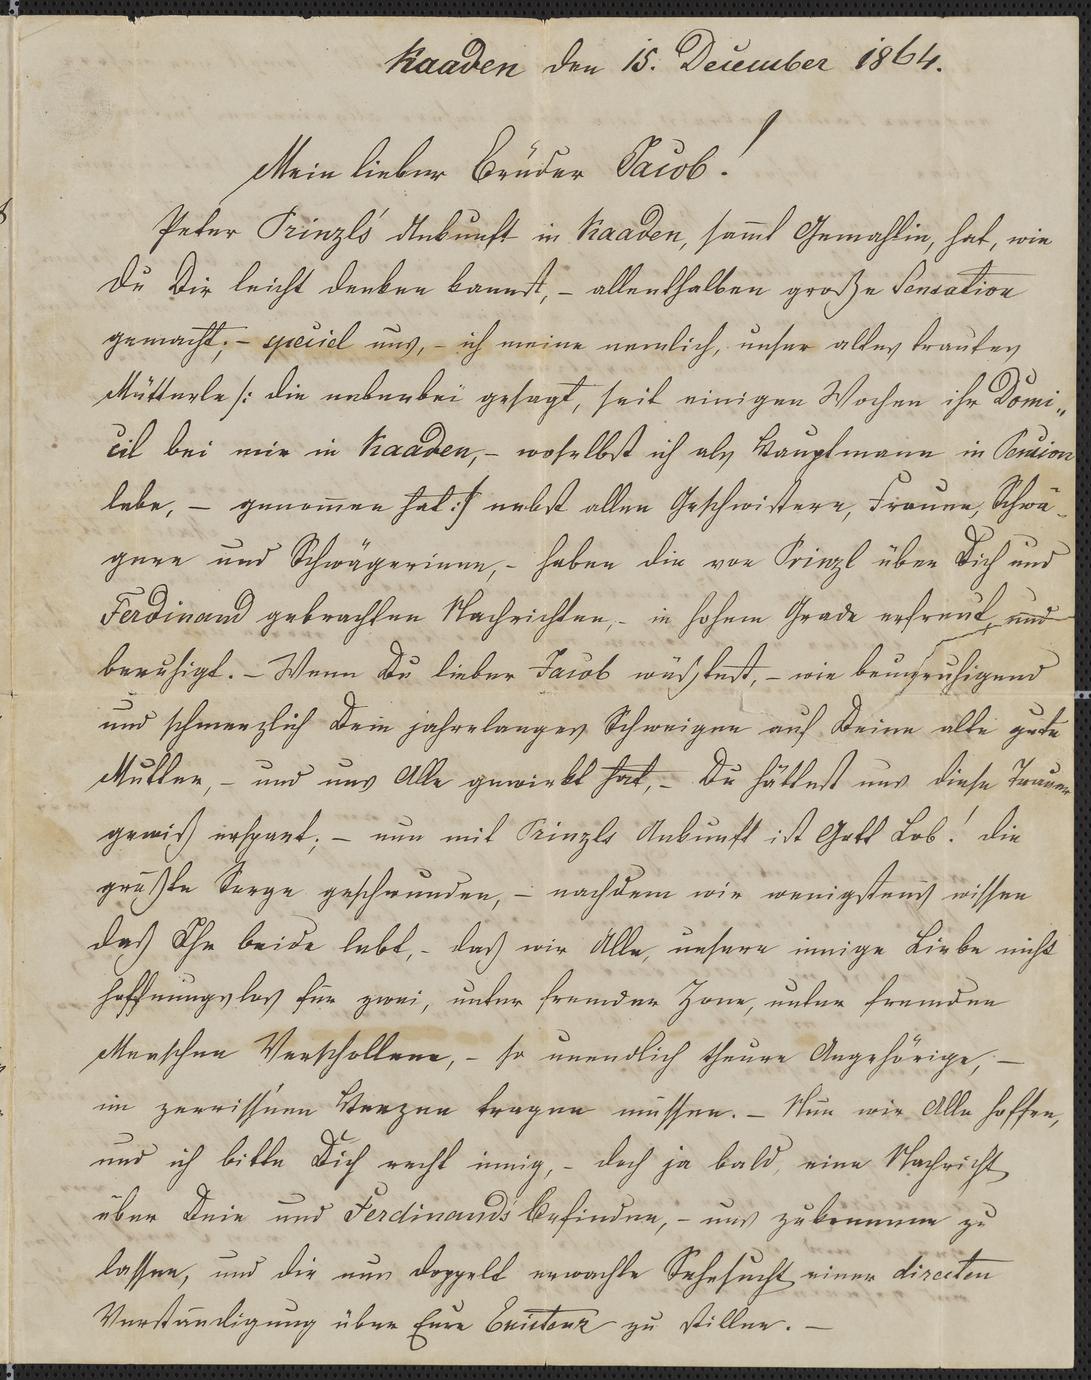 Kaaden den 15. December 1864.
Mein lieber Brüder Jacob!
Peter Prinzls' Ankunft in Kaaden, sam̄t Gemahlin, hat, wie
Du Dir leicht denken kannst, – allenthalben große Sensation
gemacht; – speciel uns, – ich meine nemlich, unser altes trautes
Mütterle /: die nebenbei gesagt, seit einigen Wochen ihr Domi„
cil bei mir in Kaaden, – woselbst ich als Hauptmann in Pension
lebe, – genom̄en hat :/ nebst allen Geschwistern, Frauen, Schwä-
gern und Schwägerinen, – haben die von Prinzl über Dich und
Ferdinand gebrachten Nachrichten, – in hohem Grade erfreut, und
beruhigt. – Wenn Du lieber Jacob wüßtest, – wie beunruhigend
und schmerzlich Dein jahrelanges Schweigen auf Deine alte gute
Mutter, – und uns Alle gewirkt hat, – Du hättest uns diese Trauer
gewiß erspart; – nun mit Prinzls Ankunft ist Gott Lob! die
größte Sorge geschwunden, – nachdem wir wenigstens wissen
daß Ihr beide lebt, – daß wir Alle, unsere innige Liebe nicht
hoffnungslos für zwei, unter fremder Zone, unter fremden
Menschen Verschollene, – so unendlich theure Angehörige, –
im zerriss'nen Herzen tragen müssen. – Nun wir Alle hoffen,
und ich bitte Dich recht innig, – doch ja bald, eine Nachricht
über Dein und Ferdinands' Befinden, – uns zukommen zu
lassen, und die nun doppelt erwachte Sehnsucht einer directen
Verständigung über Eure Existenz zu stillen. –